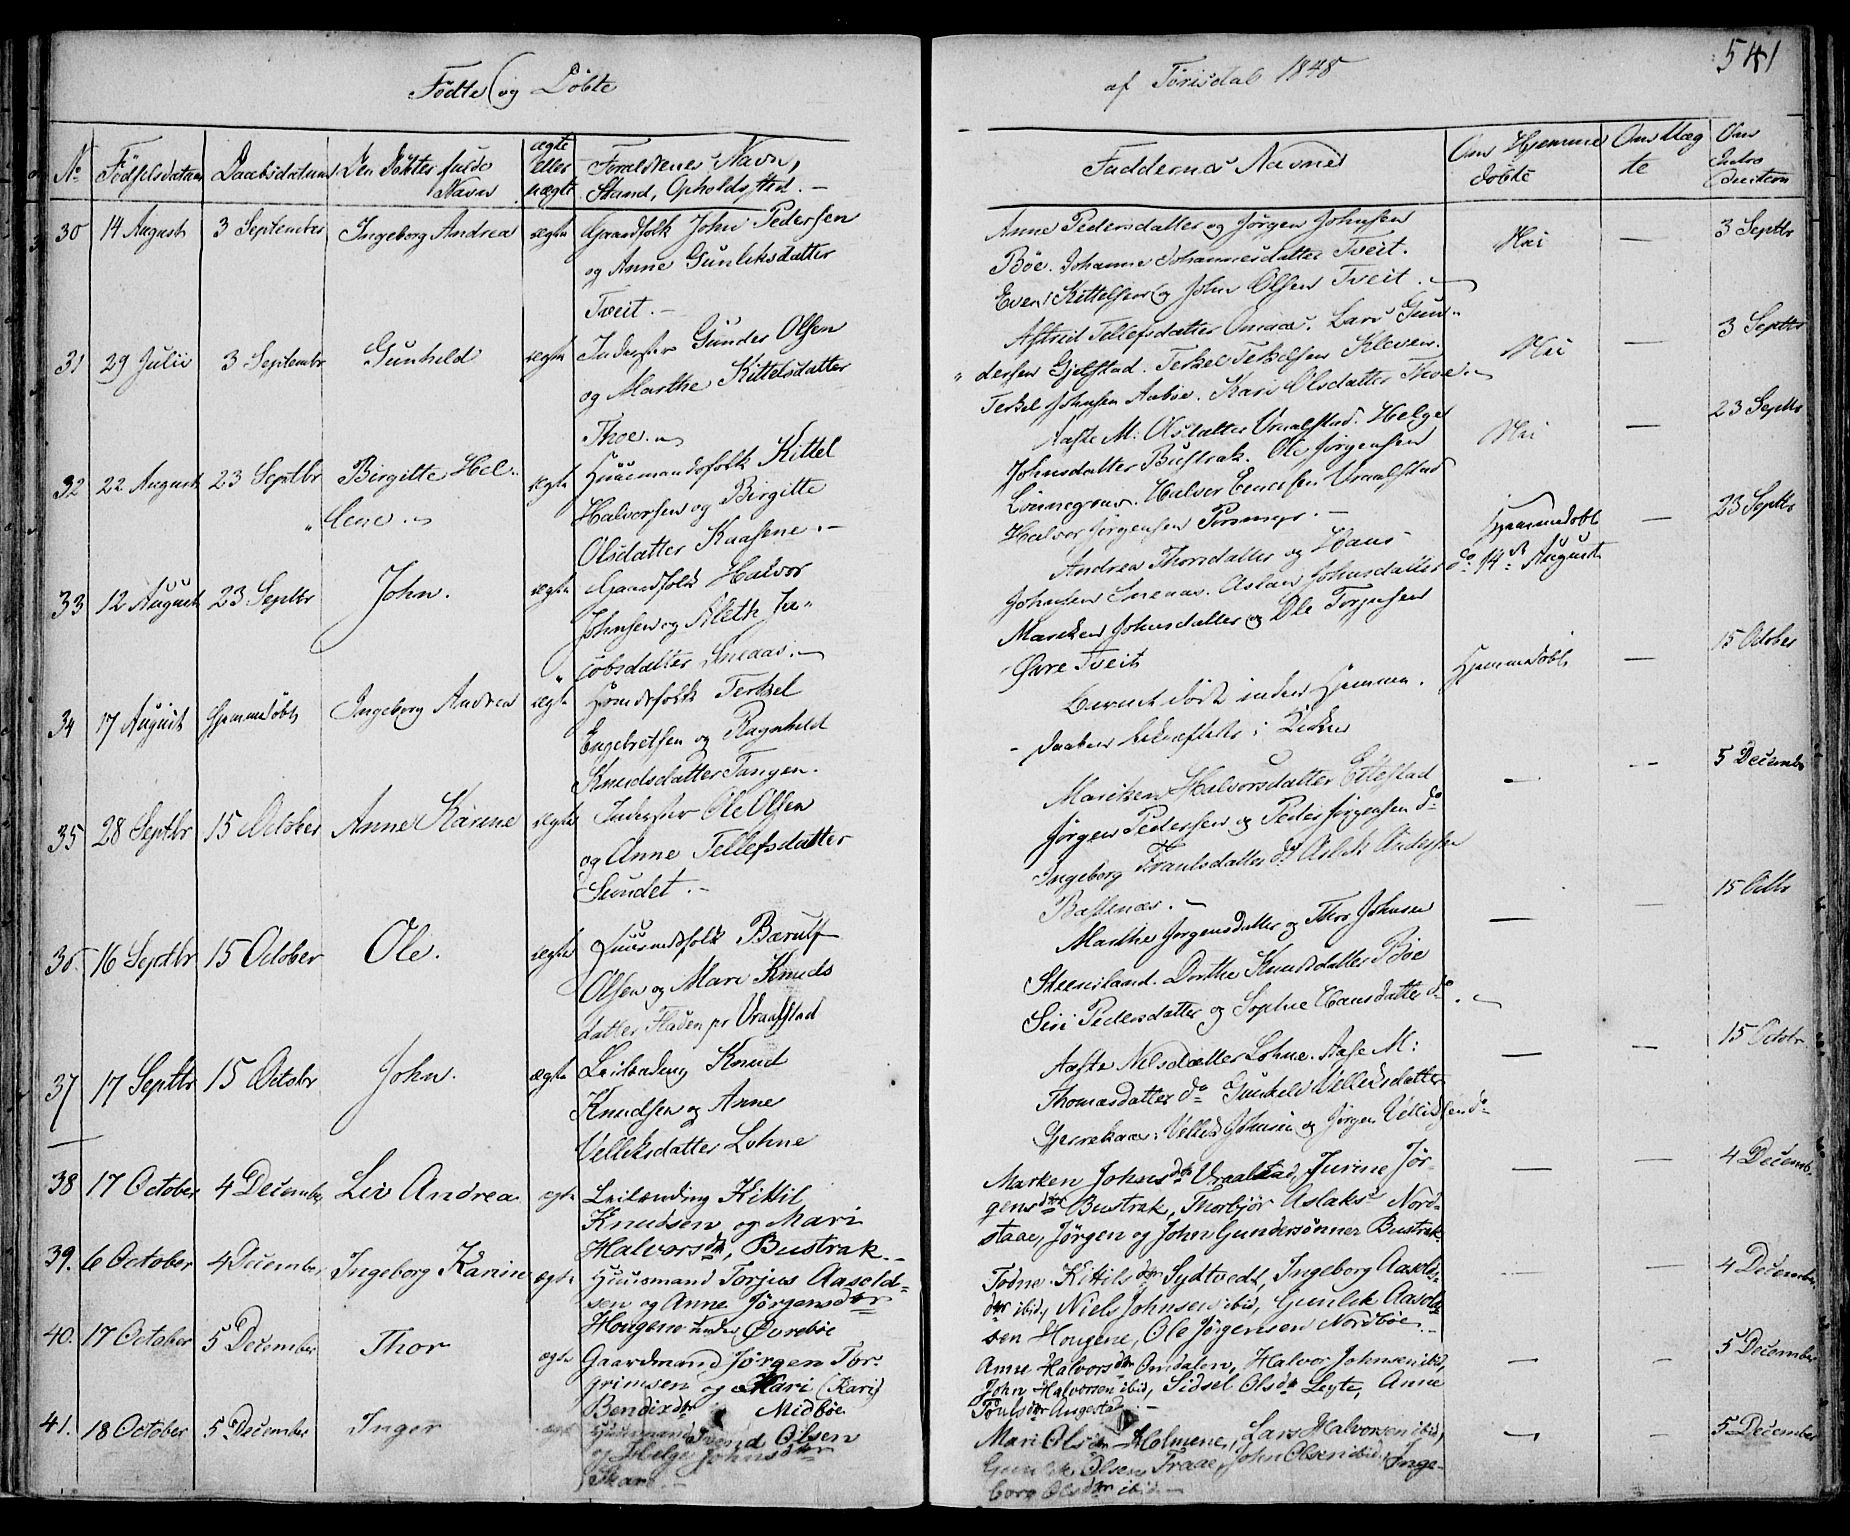 541
Födte og Döbte
af Törisdal 1848
No Födselsdatum Daabsdatum Den Döbtes fulde Navn ægte eller uægte Forældrenes Navn, Stand, Opholdssted.
Faddernes Navne Om Hjemmedöbte
30 14 August 3 September Ingeborg Andrea ægte Gaardfolk John Pedersen
og Anne Gunleksdatter
Tveit.
Anne Pedersdatter og Jörgen Johnsen
Böe. Johanne Johannesdatter Tveit.
Even Kittelsen og John Olsen Tveit.
Nei — 3 Septbr
31 29 Julii 3 Septembr Gunhild ægte Inderster Gunder Olsen
og Marthe Kittelsdatter
Thoe.
Astrid Tellefsdatter Omaas. Lars Gun-
dersen Gjelstad. Terkel Terkelsen Kleven.
Terkel Johnsen Aaböe. Kari Olsdatter Thoe.
Nei — 3 Septbr
32 22 August 23 Septbr Birgitte Hel-
lene. ægte Huusmandsfolk Kittel
Halvorsen og Birgitte
Olsdatter Kaasene.
Aaste M: Olsdatter Vraalstad. Helge
Johnsdatter Bustrak. Ole Jörgensen
Halvor Evensen Vraalstad
Halvor Jörgensen
Nei — 23 Septbr
33 12 August 23 Septbr John. ægte Gaardfolk Halvor
Johnsen og Aleth Ja-
cobsdatter Sneaas.
Andrea Thorsdatter og Hans
Johnsen Sneaas. Aslaug Johnsdatter
Mariken Johnsdatter og Ole Torjusen
Övre Tveit
Hjemmedöbt
do 14de August — 23 Septbr
34 17 August Hjemmedöbt Ingeborg Andrea ægte Huusmandsfolk Terkel
Engebretsen og Ragnhild
Knudsdatter Tangen.
Barnet döde inden Hjemme-
daaben bekræftedes i Kirken
Hjemmedöbt — 15 October
35 28 Septbr 15 October Anne Karine ægte Inderster Ole Olsen
og Anne Tellefsdatter
Sundet.
Mariken Halvorsdatter Ettestad
Jörgen Pedersen og Peder Jörgensen do
Ingeborg do Aslak Andersen
Bastnæs.
— — 5 Decembr
36. 16 Septbr 15 October Ole. ægte Huusmdsfolk Bærulf
Olsen og Mari Knuds
datter Fladen pr Vraalstad
Marthe Jörgensdatter og Thor Johnsen
Steensland. Dorthe Knudsdatter Böe
Siri Pedersdatter og Sophie Hansdatter do
— — 15 Octbr
37 17 Septbr 15 Octobr John. ægte Leilænding Knud
Knudsen og Anne
Velleksdatter Lohne
Aaste Nilsdatter Lohne. Aase M:
Thomasdatter do Gunhild Velleksdatter
Gjerekaas. Vellek Johnsen og Jörgen Velleksen do
— — 15 Octobr
38 17 October 4 December Liv Andrea ægte Leilænding Kittil
Knudsen og Mari
Halvorsdtr, Bustrak.
Marken Johnsdtr Vraalstad, Jurine Jör-
gensdtr Bustrak, Thorbjör Aslaksd Nord-
staae, Jörgen og John Gundersönner Bustrak
— — 4 Decemb
39. 6 October 4 December Ingeborg Karine ægte Huusmand Torjus Aasold-
sen og Anne Jörgensdtr
Hougene under Övreböe
Tödne Kittilsdtr Sydtvedt, Ingeborg Aasolds-
dtr ibid, Niels Johnsen ibid, Gunlek Aasold-
sen Hougene, Ole Jörgensen Nordböe.
— — 4 December
40. 17 October 5 December Thor ægte Gaardmand Jörgen Tor-
grimsen og Mari (Kari)
Bendixdtr Midböe
Anne Halvorsdtr Omdalen, Halvor Johnsen ibid,
John Halvorsen ibid, Sidsel Olsdtr Leyte, Anne
Toulsdtr Angestad.
— — 5 December
41. 18 October 5 December Inger ægte Huusmand Svend Olsen
og Helge Johnsdtr
Skare.
Mari Olsdtr Holmene, Lars Halvorsen ibid,
Gunlek Olsen Traae, John Olsen ibid, Inge-
borg Olsdtr ibid.
— — 5 December